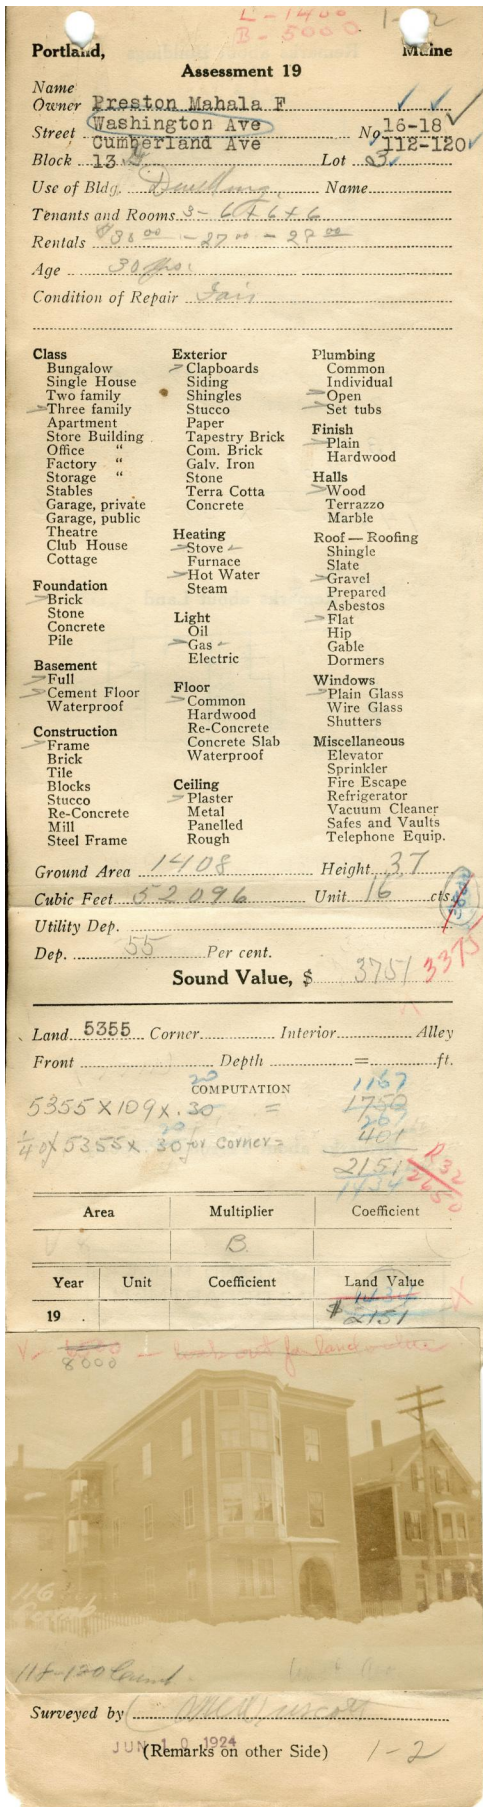 L-1400
B-5000
1-2
Portland, Maine
Assessment 19
Name
Owner Preston Mahala F
Street Washington Ave No 16-18
Cumberland Ave 112-120
Block 13 Lot 3
Use of Bldg. Dwelling Name
Tenants and Rooms 3- 6+6+6
Rentals $30 00 - 27 00 - 28 00
Age 30 Yrs.
Condition of Repair Fair
Class
Bungalow
Single House
Two family
Three family
Apartment
Store Building
Office "
Factory "
Storage "
Stables
Garage, private
Garage, public
Theatre
Club House
Cottage
Foundation
Brick
Stone
Concrete
Pile
Basement
Full
Cement Floor
Waterproof
Construction
Frame
Brick
Tile
Blocks
Stucco
Re-Concrete
Mill
Steel Frame
Exterior
Clapboards
Siding
Shingles
Stucco
Paper
Tapestry Brick
Com. Brick
Galv. Iron
Stone
Terra Cotta
Concrete
Heating
Stove
Furnace
Hot Water
Steam
Light
Oil
Gas
Electric
Floor
Common
Hardwood
Re-Concrete
Concrete Slab
Waterproof
Ceiling
Plaster
Metal
Panelled
Rough
Plumbing
Common
Individual
Open
Set tubs
Finish
Plain
Hardwood
Halls
Wood
Terrazzo
Marble
Roof — Roofing
Shingle
Slate
Gravel
Prepared
Asbestos
Flat
Hip
Gable
Dormers
Windows
Plain Glass
Wire Glass
Shutters
Miscellaneous
Elevator
Sprinkler
Fire Escape
Refrigerator
Vacuum Cleaner
Safes and Vaults
Telephone Equip.
Ground Area 1408 Height 37
Cubic Feet 52096 Unit 16 cts.
Utility Dep.
Dep. 55 Per cent.
Sound Value, $ 3751 3375
Land 5355 Corner Interior Alley
Front Depth = ft.
20 COMPUTATION 1167
5355 X 109 X .30 = 1750
20 267
1/4 of 5355 X .30 for Corner = 401
2151 R 32
1434 2650
Area Multiplier Coefficient
B.
Year Unit Coefficient Land Value
1434
19 $ 2151
8000 - look out for land value
116
Cumb
118-120 Cumb.
Surveyed by
JUN 10 1924
(Remarks on other Side) 1-2